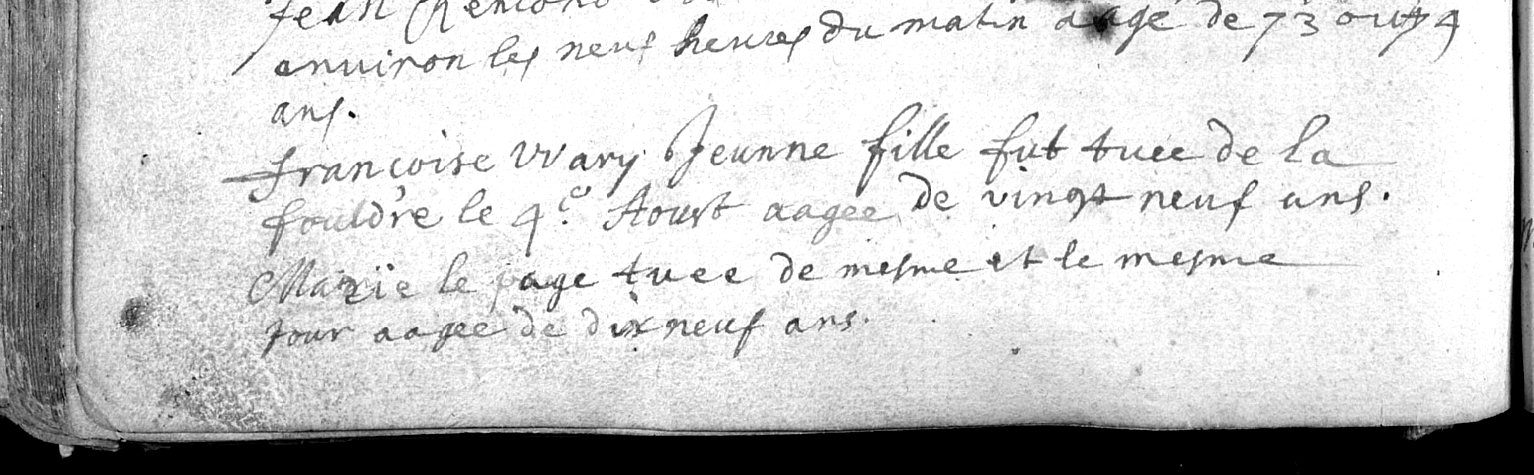 Jean
environ les neuf heures du matin aagé de 73 ou 74
ans.
françoise Wary Jeunne fille fut tuee de la
fouldre le 4e. Aoust aagee de vingt neuf ans.
Marie le page tuee de mesme et le mesme
jour aagee de dix neuf ans.